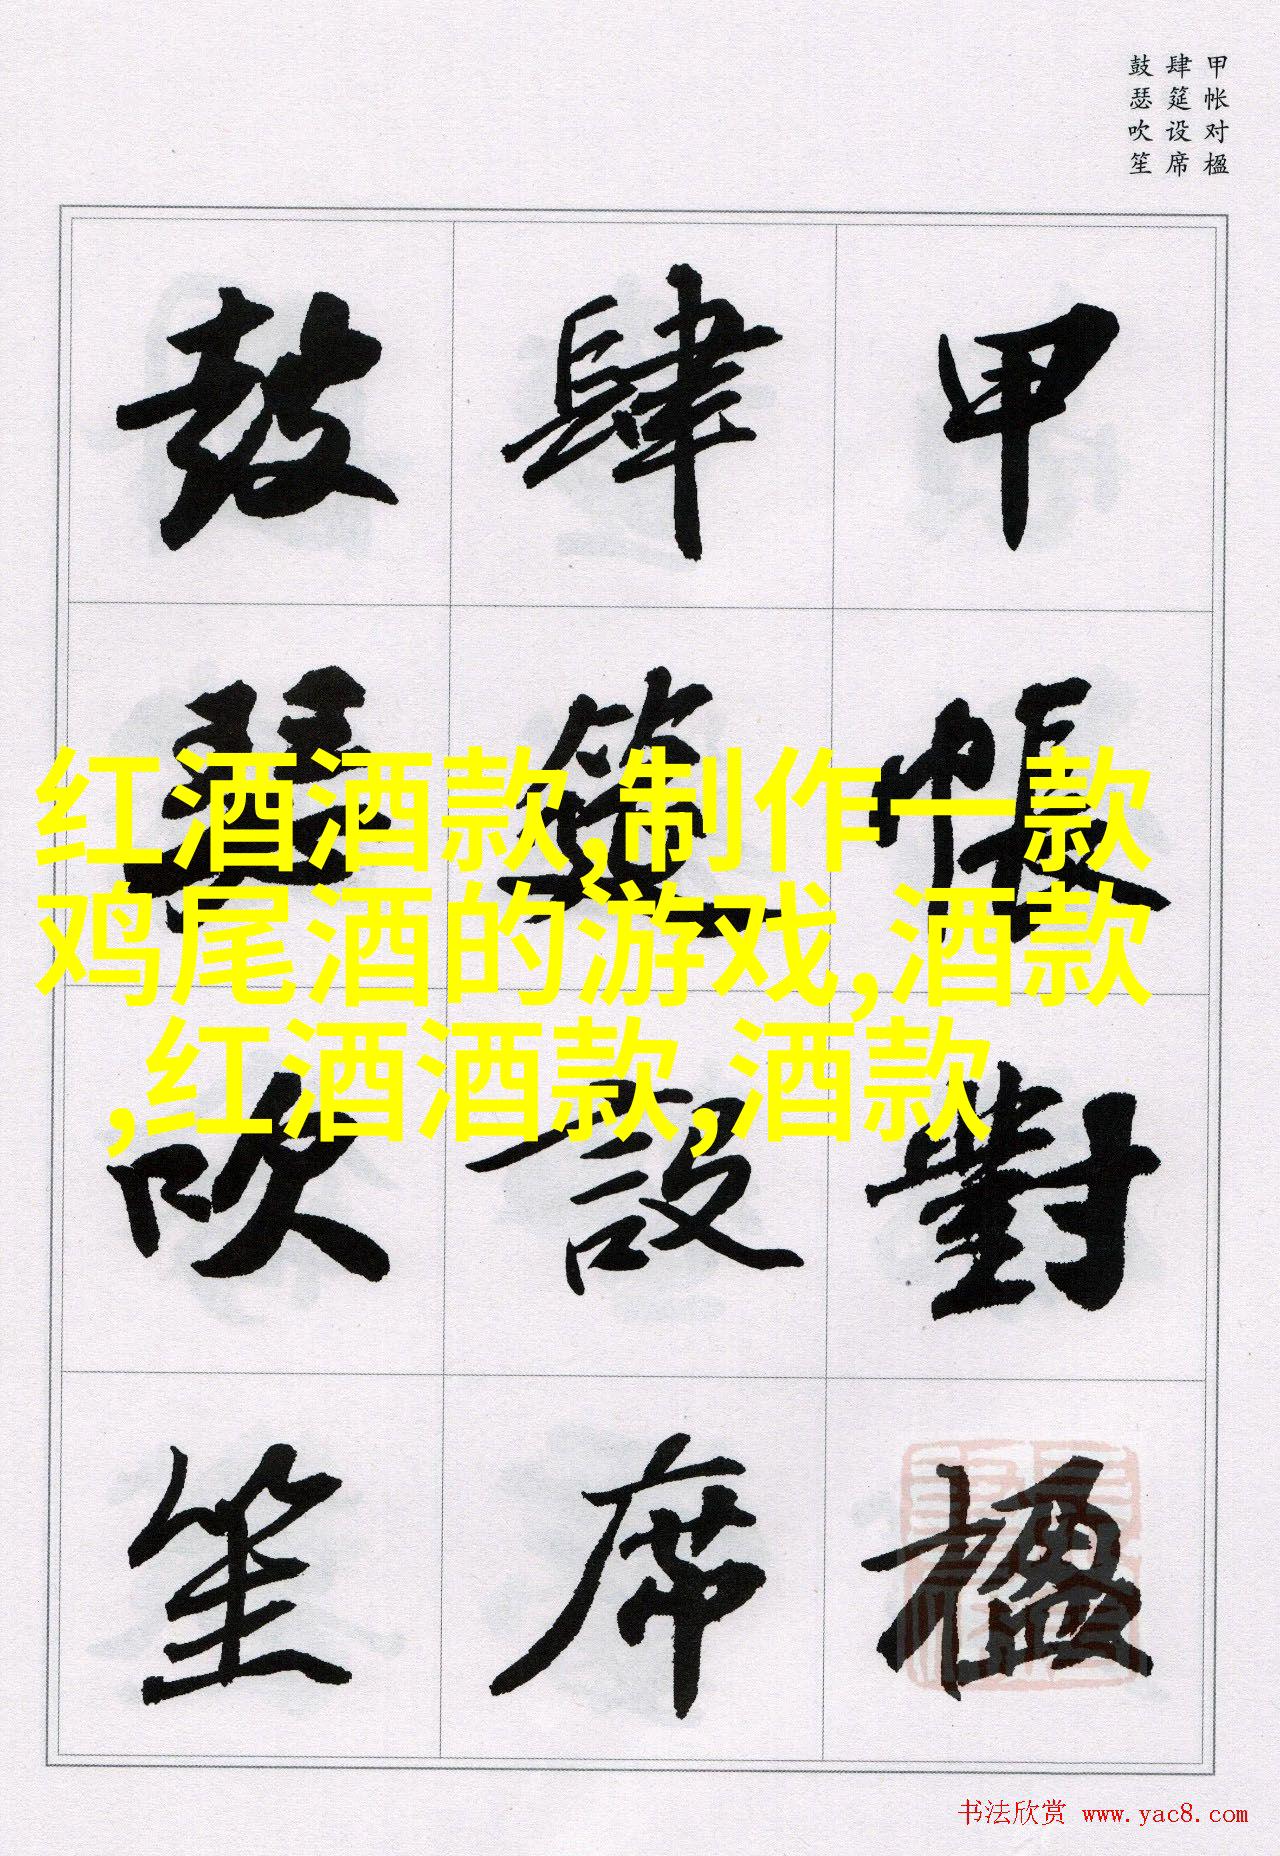 甲帐对楹
肆筵设席
鼓瑟吹笙
甲帳對楹
肆筵設席
鼓瑟吹笙
红酒酒款,制作一款
鸡尾酒的游戏,酒款
,红酒酒款,酒款
书法欣赏 www.yac8.com